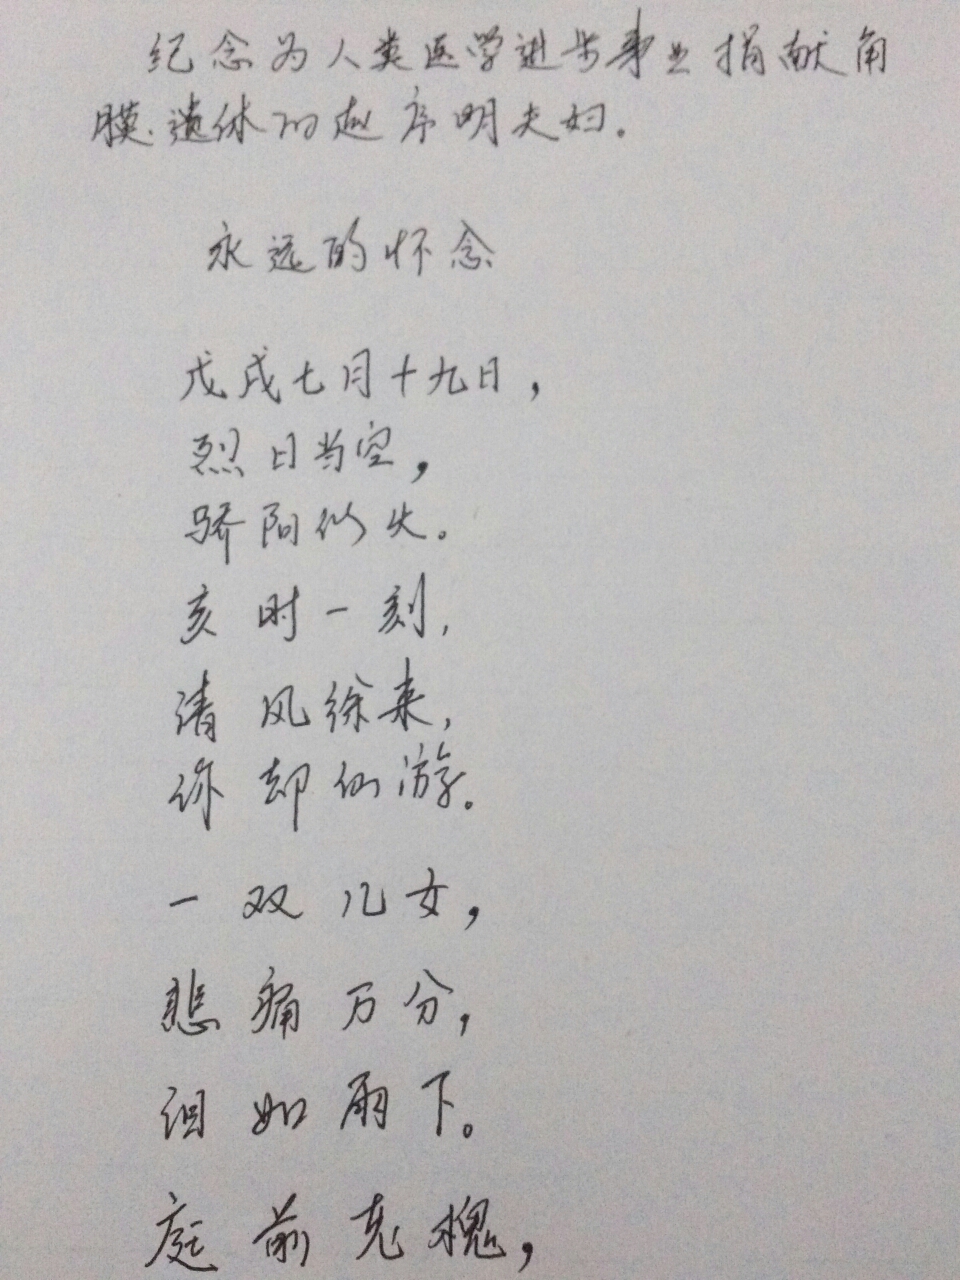 纪念为人类医学进步事业捐献角
膜、遗体的赵序明夫妇.
永远的怀念
戊戌七月十九日，
烈日当空，
骄阳似火。
亥时一刻，
清风徐来，
你却仙游。
一双儿女，
悲痛万分，
泪如雨下。
庭前老槐，